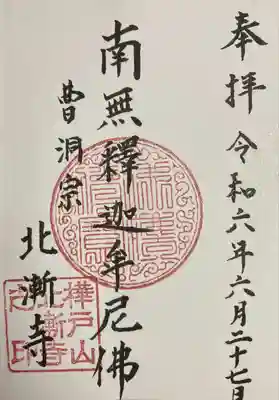 奉拝 令和六年六月二十七日
南無釋迦牟尼佛
曹洞宗
北漸寺
樺戸山
北漸寺
之印